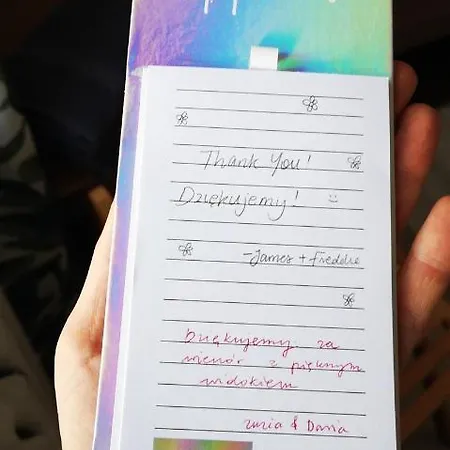 Thank You!
Dziękujemy!
-James + Freddie
Dziękujemy za
wieczór z pięknym
widokiem
Zuzia & Daria